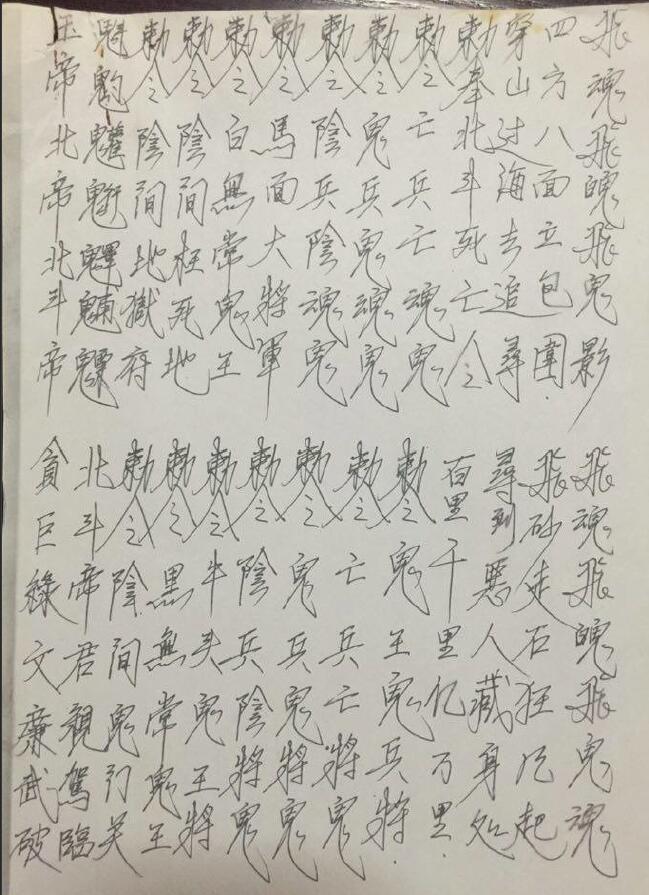 飛魂飛魄飛鬼影
四方八面立包圍
穿山过海去追尋
勅奉北斗死亡令
勅令亡兵亡魂鬼
勅令鬼兵鬼魂鬼
勅令陰兵陰魂鬼
勅令馬面大將軍
勅令白無常鬼王
勅令陰間枉死地
勅令陰間地獄府
玉帝北帝北斗帝
飛魂飛魄飛鬼魂
飛砂走石狂风起
尋到惡人藏身处
百里千里亿万里
勅令鬼王鬼兵將
勅令亡兵亡將鬼
勅令鬼兵鬼將鬼
勅令陰兵陰將鬼
勅令牛头鬼王將
勅令黑無常鬼王
勅令陰間鬼门关
北斗帝君親駕臨
貪巨祿文廉武破